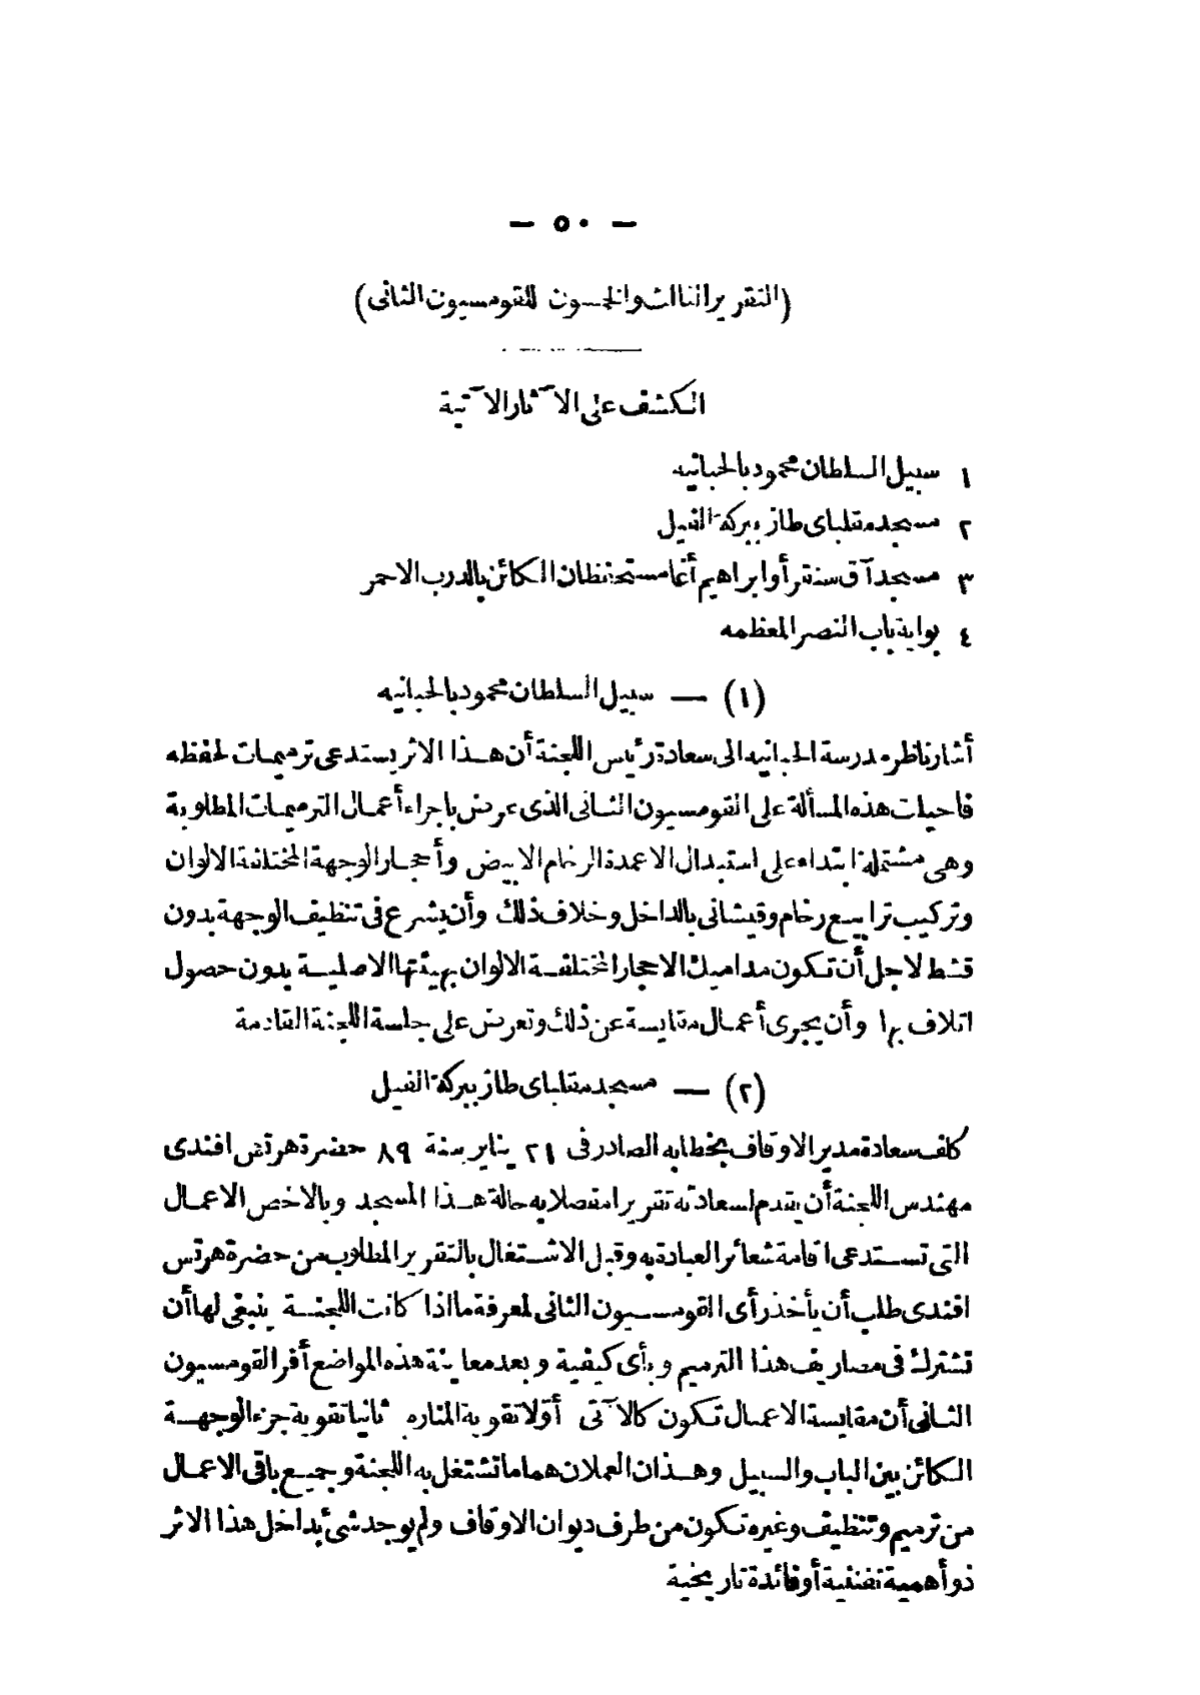 — ٥٠ —
(التقرير الثالث والخمسون للقومسيون الثانى)
الكشف على الآثار الآتية
١ سبيل السلطان محمود بالحبانيه
٢ مسجد مغلباى طاز ببركة الفيل
٣ مسجد آق سنقر أو ابراهيم أغا مستحفظان الكائن بالدرب الاحمر
٤ بوابة باب النصر المعظمه
(١) — سبيل السلطان محمود بالحبانيه
أشار ناظر مدرسة الحبانيه الى سعادة رئيس اللجنة أن هذا الاثر يستدعى ترميمات لحفظه
فاحيلت هذه المسألة على القومسيون الثانى الذى عرض باجراء أعمال الترميمات المطلوبة
وهى مشتملة ابتداء على استبدال الاعمدة الرخام الابيض وأحجار الوجهة المختلفة الالوان
وتركيب ترابيع رخام وقيشانى بالداخل وخلاف ذلك وأن يشرع فى تنظيف الوجهة بدون
قشط لاجل أن تكون مداميك الاحجار المختلفة الالوان بهيئتها الاصلية بدون حصول
اتلاف بها وأن يجرى أعمال مقايسة عن ذلك وتعرض على جلسة اللجنة القادمة
(٢) — مسجد مغلباى طاز ببركة الفيل
كلف سعادة مدير الاوقاف بخطابه الصادر فى ٢١ يناير سنة ٨٩ حضرة هرتس افندى
مهندس اللجنة أن يقدم لسعادته تقريرا مفصلا به حالة هذا المسجد وبالاخص الاعمال
التى تستدعى اقامة شعائر العبادة به وقبل الاشتغال بالتقرير المطلوب من حضرة هرتس
افندى طلب أن يأخذ رأى القومسيون الثانى لمعرفة ما اذا كانت اللجنة ينبغى لها أن
تشترك فى مصاريف هذا الترميم وبأى كيفية وبعد معاينة هذه المواضع أقر القومسيون
الثانى أن مقايسة الاعمال تكون كالآتى أولا تقوية المناره ثانيا تقوية جزء الوجهة
الكائن بين الباب والسبيل وهذان العملان هما ما تشتغل به اللجنة وجميع باقى الاعمال
من ترميم وتنظيف وغيره تكون من طرف ديوان الاوقاف ولم يوجد شئ بداخل هذا الاثر
ذو أهمية تفننية أو فائدة تاريخية